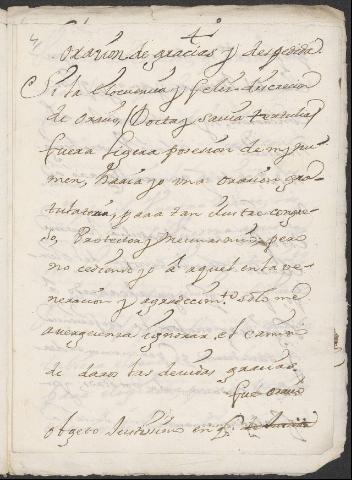 Oración de gracias y despedida.
Si la Elocuencia y feliz discrecion
de orador, Docta y Sabia tertulia,
fuera ligera posesion de mi nu-
men, haria yo una oracion gra-
tulatoria, para tan ilustre congre-
so, Protector y pero
no cediendo yo á aquel en la ve-
neracion y agradecim.to solo me
averguenza ignorar el camino
de daros las devidas gracias.
Fué
obgeto en q.